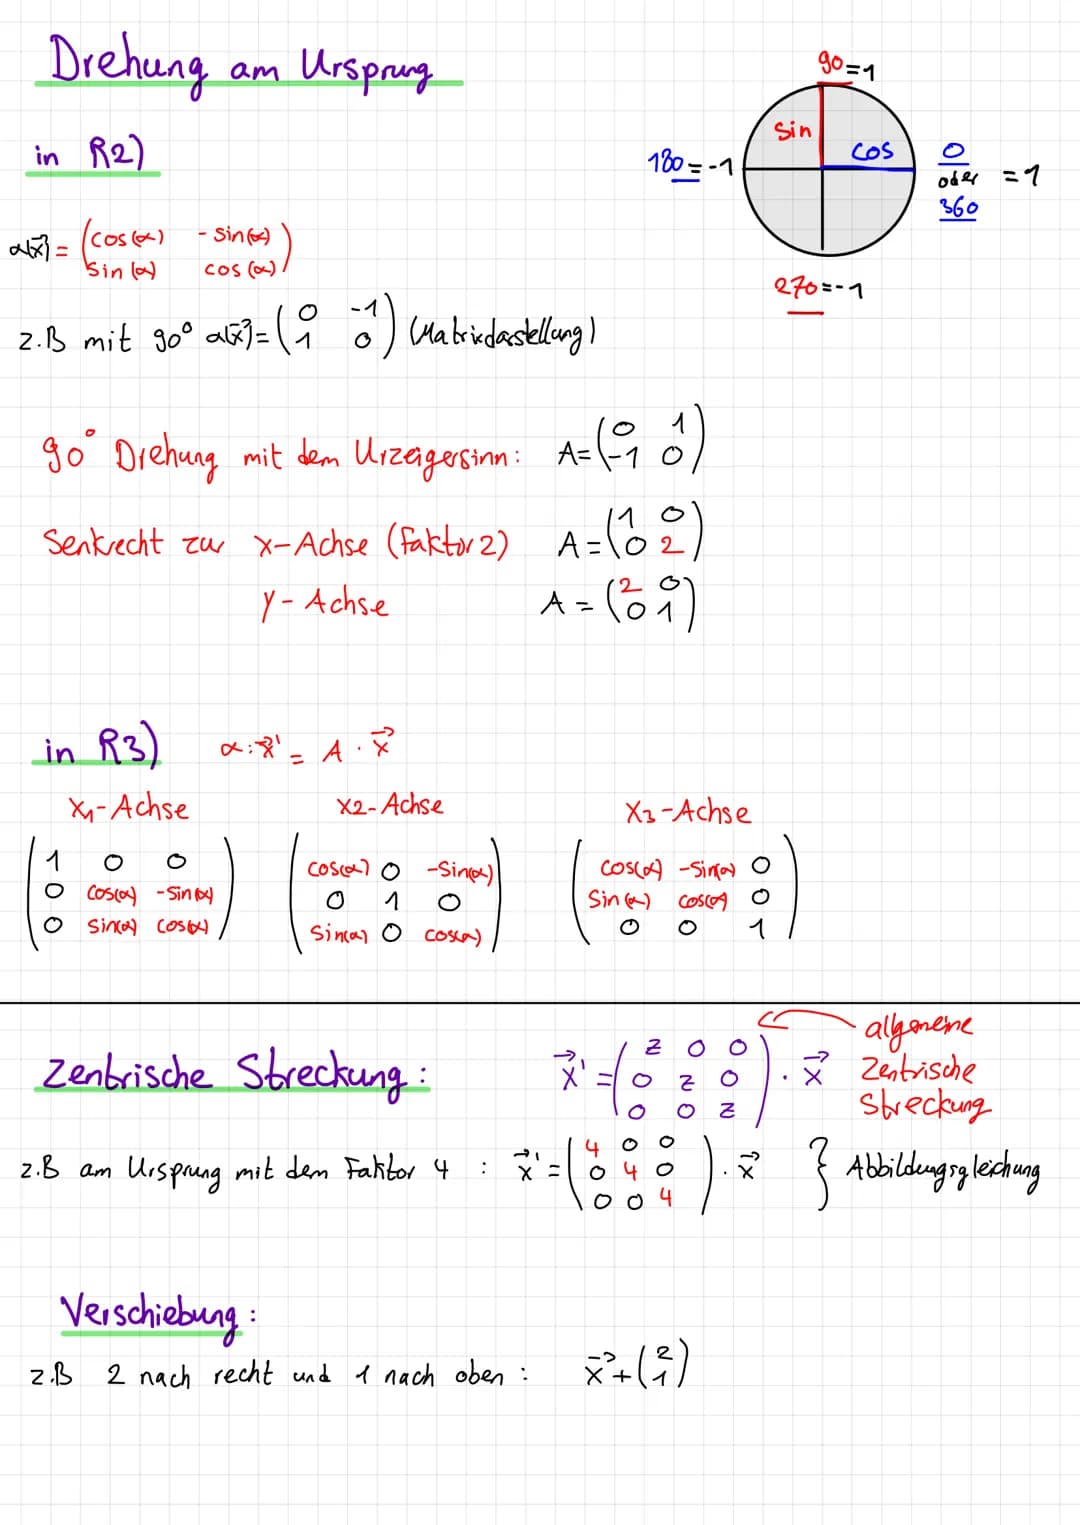 Drehung am Ursprung
90=1
sin
cos
180=-1
0 oder 360 =1
270=-1
in R2)
α(x⃗)= (cos(α) -sin(α)
sin(α) cos(α))
z.B mit 90° α(x⃗)= (0 -1
1 0) (Matrixdarstellung)
90° Drehung mit dem Urzeigersinn: A= (0 1
-1 0)
Senkrecht zur x-Achse (Faktor 2) A= (1 0
0 2)
y-Achse A = (2 0
0 1)
in R3) α:x⃗' = A · x⃗
x1-Achse x2-Achse x3-Achse
(1 0 0
0 cos(α) -sin(α)
0 sin(α) cos(α))
(cos(α) 0 -sin(α)
0 1 0
sin(α) 0 cos(α))
(cos(α) -sin(α) 0
sin(α) cos(α) 0
0 0 1)
Zentrische Streckung:
x⃗' = (z 0 0
0 z 0
0 0 z) · x⃗
allgemeine
Zentrische
Streckung
z.B am Ursprung mit dem Faktor 4 : x⃗' = (4 0 0
0 4 0
0 0 4) · x⃗ } Abbildungsgleichung
Verschiebung:
z.B 2 nach recht und 1 nach oben : x⃗+(2
1)